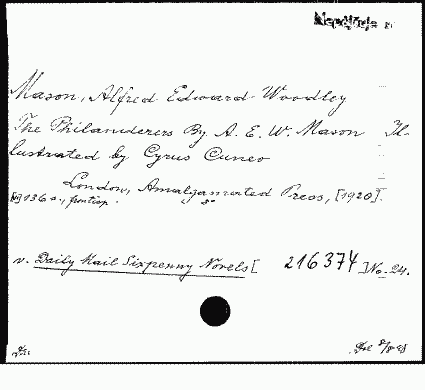 Mason, Alfred Edward Woodley
The Philanderers By A. E. W. Mason Il-
lustrated by Cyrus Cuneo
London, Amalgamated Press, [1920].
136 s., frontisp. 8°
v. Daily Mail Sixpenny Novels [ 216374 ] No. 24.